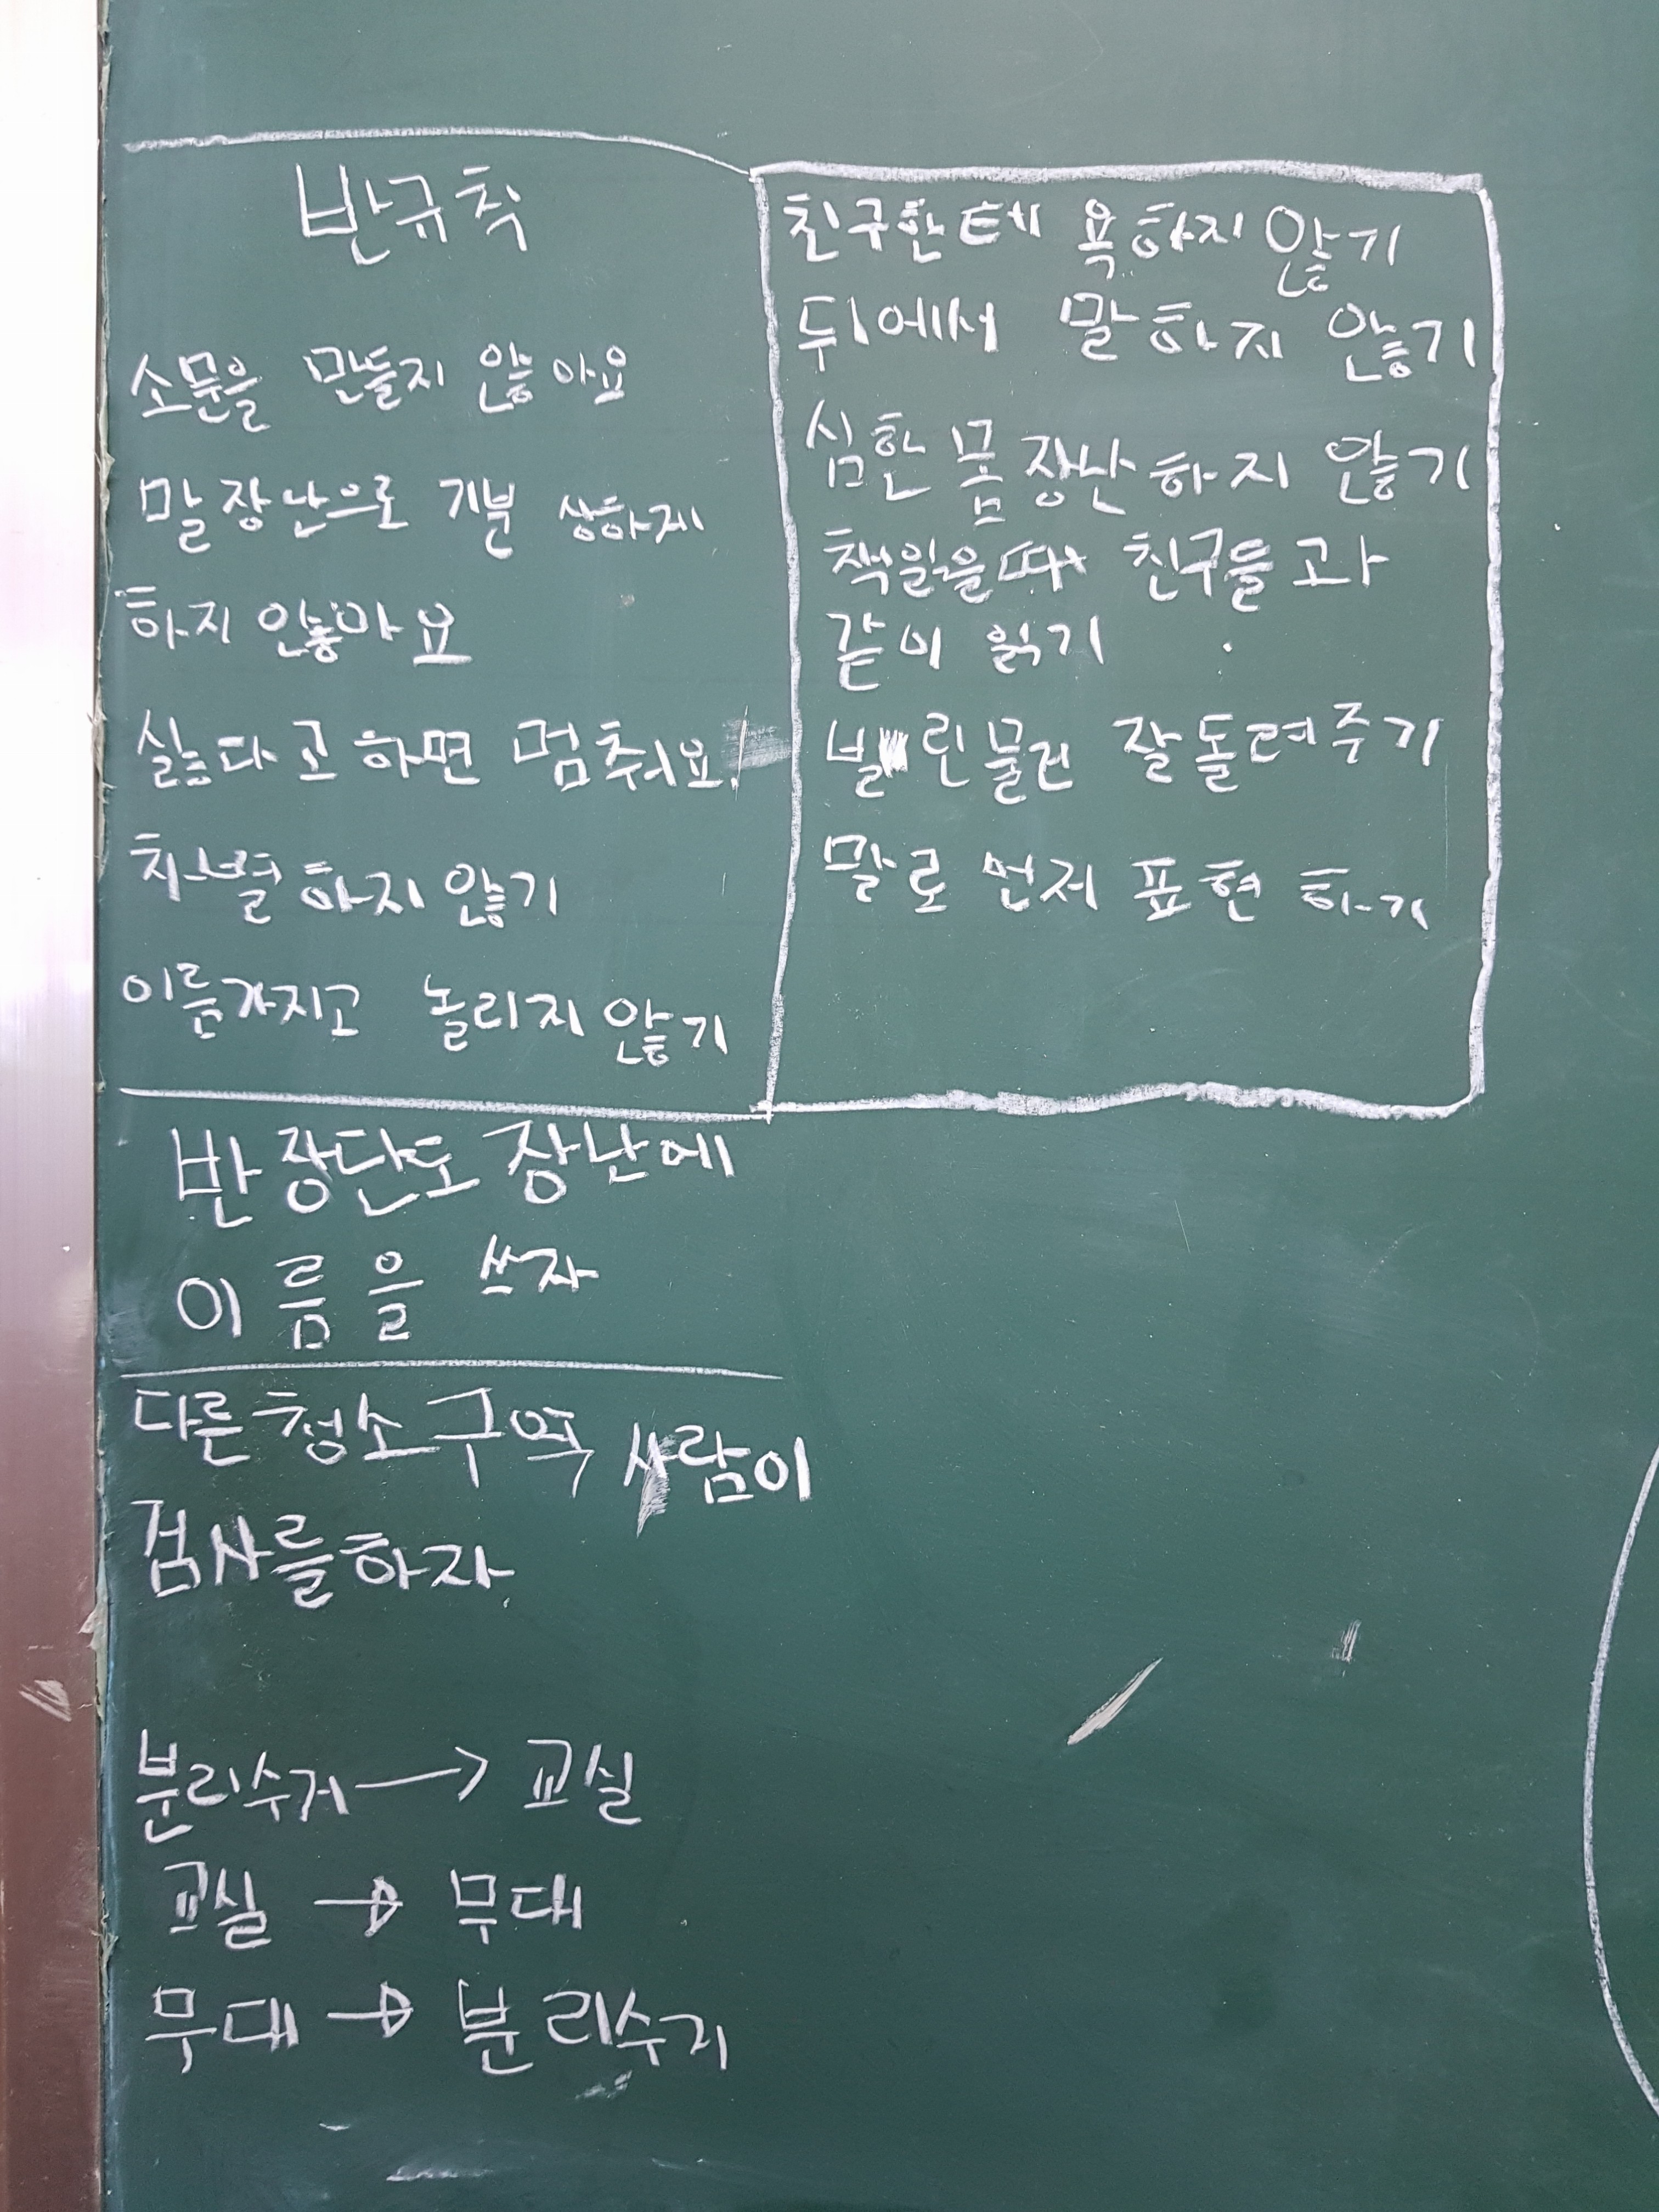 반규칙
소문을 만들지 않아요
말장난으로 기분 상하게
하지 않아요
싫다고 하면 멈춰요!
차별하지 않기
이름가지고 놀리지 않기
친구한테 욕하지 않기
뒤에서 말하지 않기
심한 몸장난하지 않기
책읽을때 친구들과
같이 읽기
빌린물건 잘돌려주기
말로 먼저 표현 하기
반장단도 장난에
이름을 쓰자
다른청소구역 사람이
검사를하자.
분리수거 → 교실
교실 → 무대
무대 → 분리수거